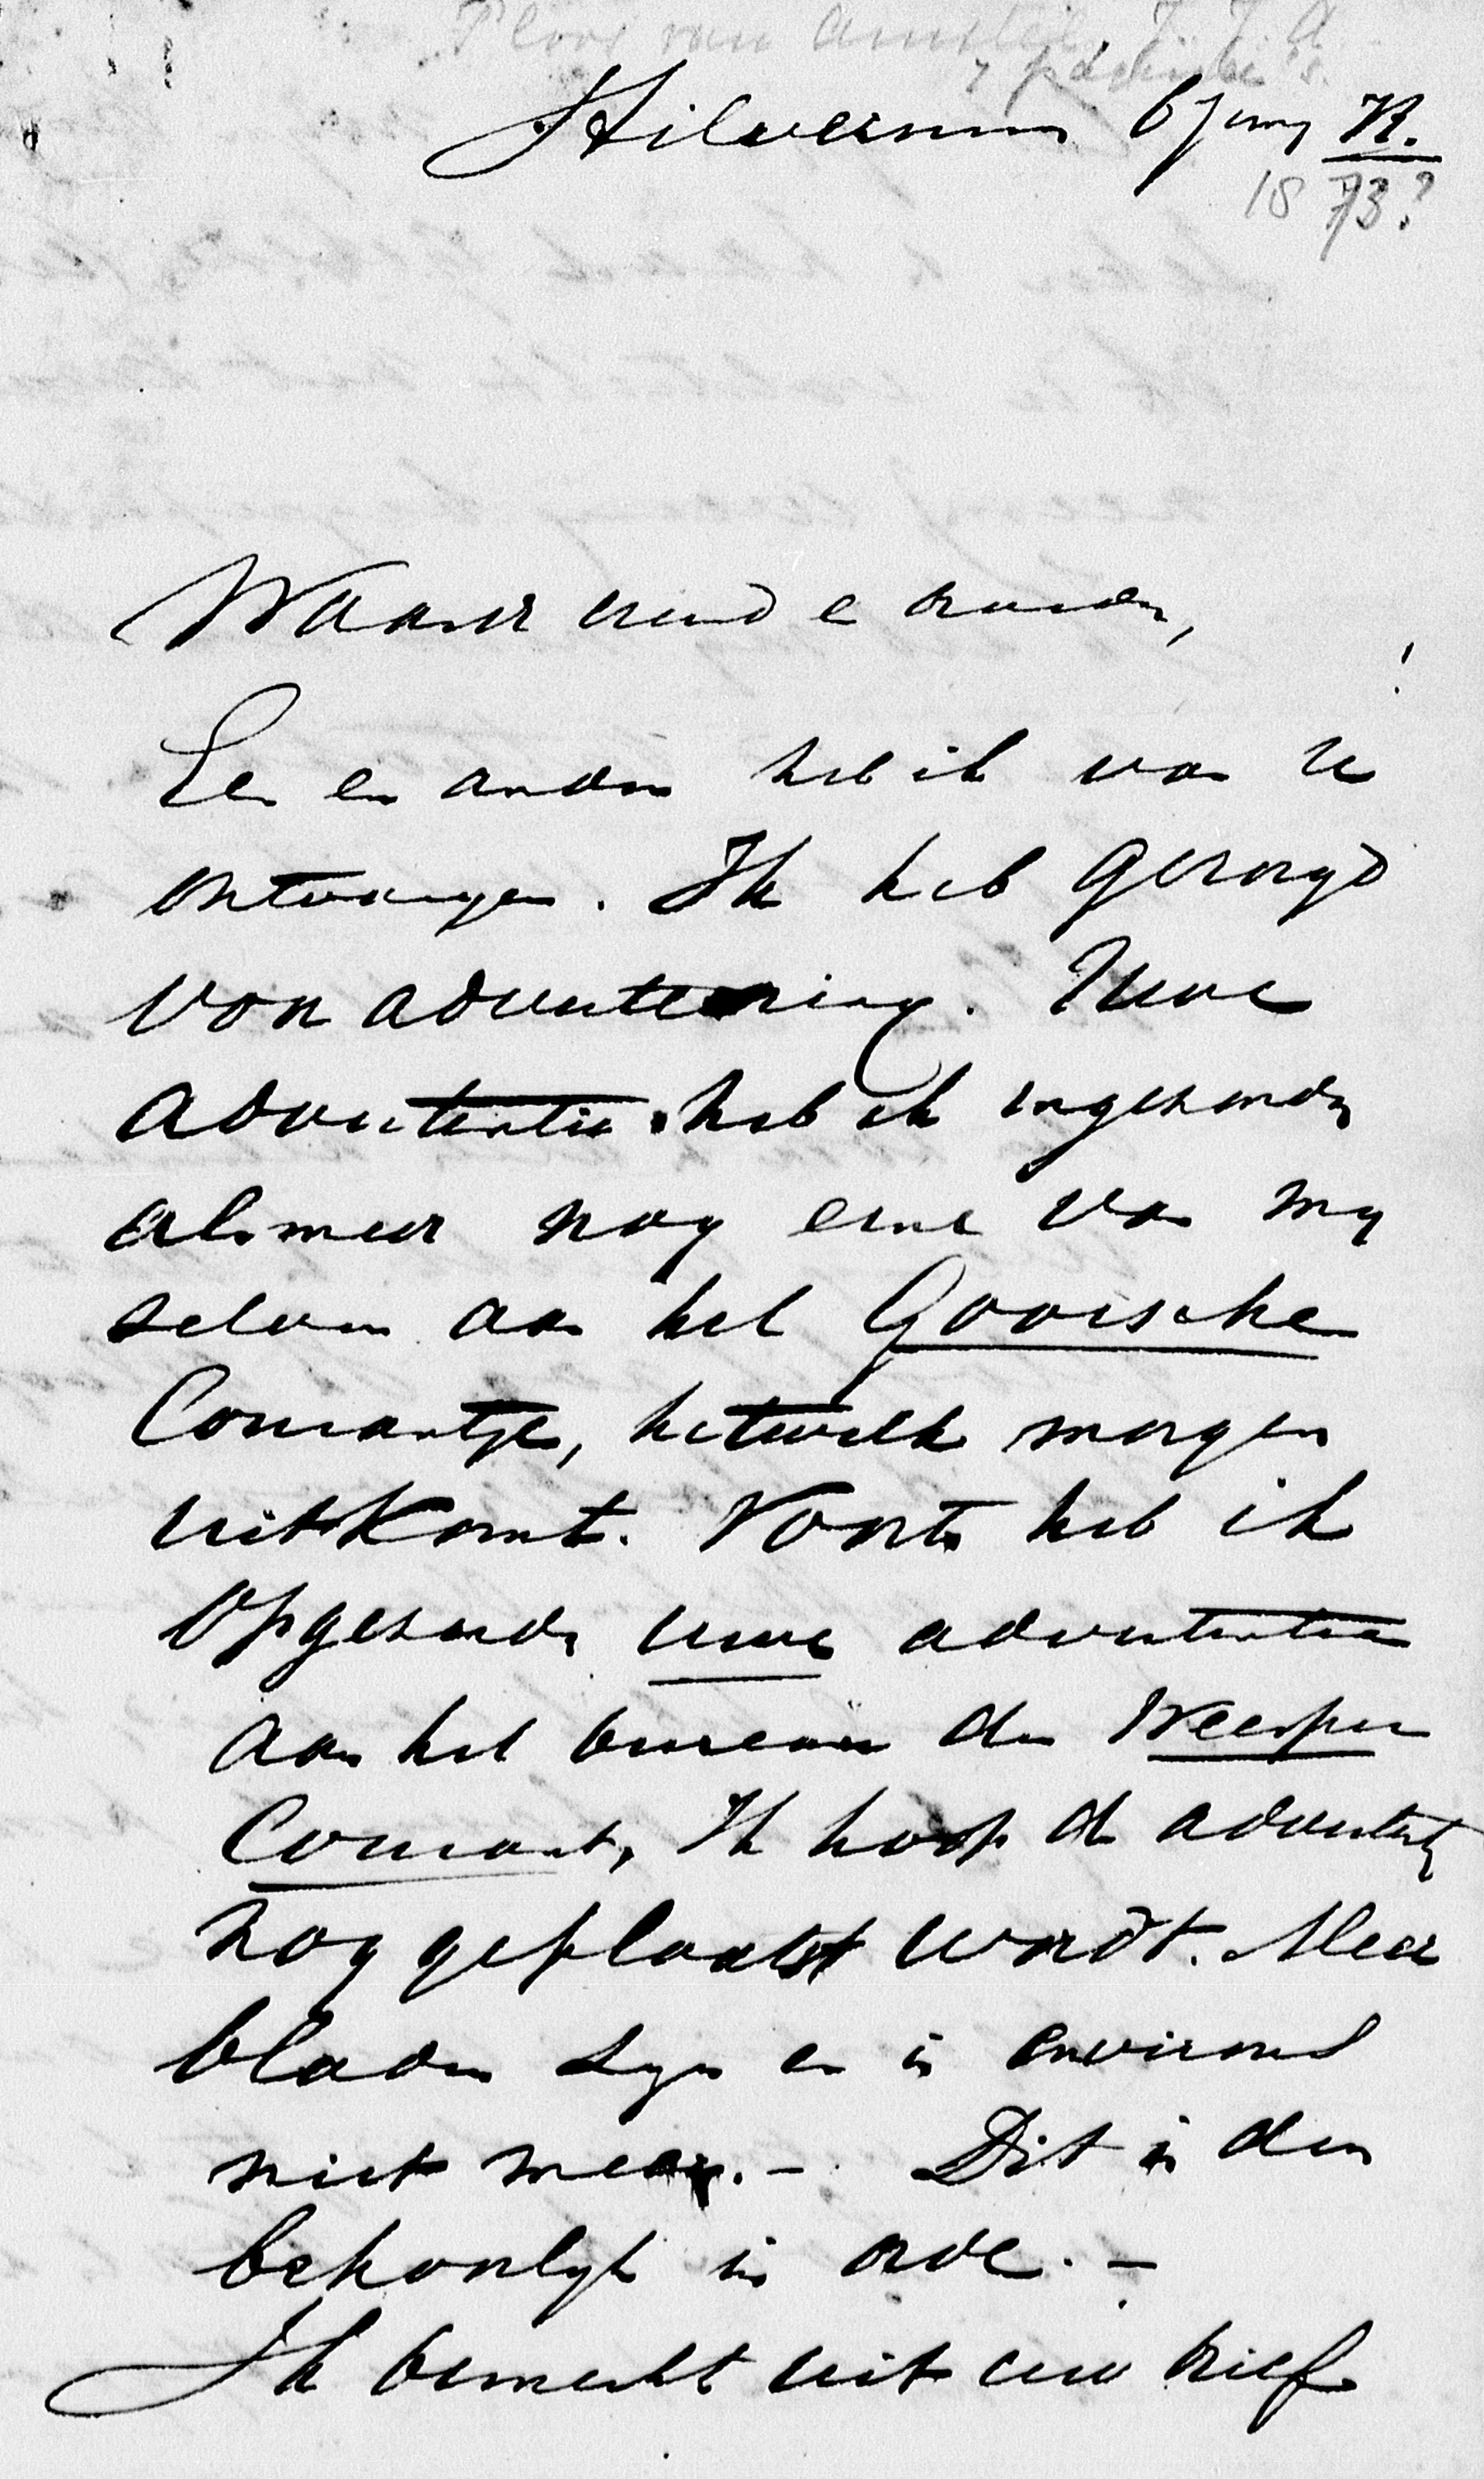 Ploos van Amstel, J. J. A.
Hilversum 6 Juny 73.
18 73?
Waarde vriend en broeder,
Een en ander heb ik van U
ontvangen. Ik heb gezorgd
voor adverteering. Uwe
advertentie heb ik ingezonden
alsmeer nog eene van my
zelven aan het Gooische
Courantje, hetwelk morgen
uitkomt. Voorts heb ik
opgezonden uwe advertentie
aan het bureau der Weesper
Courant, Ik hoop de advertentie
nog geplaatst wordt. Meer
bladen zyn er in environs
niet meer. – Dit is dan
behoorlyk in orde. –
Ik bemerkt uit uw brief